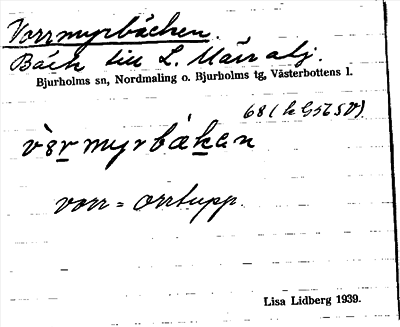 Vorrmyrbäcken.
Bäck till L. Mårrabj.
Bjurholms sn, Nordmaling o. Bjurholms tg, Västerbottens l.
68 (k G 56 SV).
vòr myrbäken
vorr = orrtupp.
Lisa Lidberg 1939.